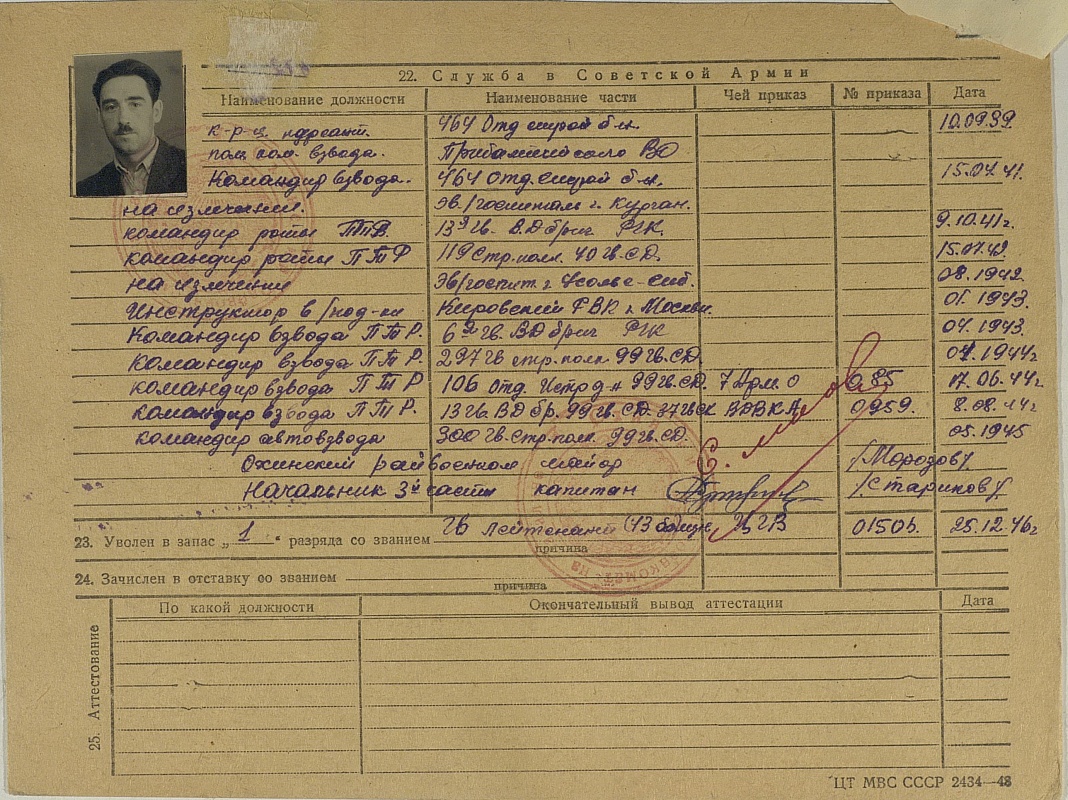 22. Служба в Советской Армии
Наименование должности Наименование части Чей приказ № приказа Дата
к-р-ц 464 Отд строй б-н. 10.09.39.
пом. ком. взвода. ВО
Командир взвода. 464 отд. строй б-н, 15.04.41.
на излечении. эв/госпиталь г. Курган.
командир роты 13я гв. В.Д бриг РГК. 9.10.41г.
командир роты ПТР 119 Стр. полк 40 гв. СД. 15.07.42.
на излечении эв/госпит. г. Усолье-Сиб. 08.1942
Инструктор в/под-ки Кировский РВК г. Москвы. 01.1943
Командир взвода ПТР. 6я гв. ВД бриг РГК 04.1943.
командир взвода ПТР. 297 гв стр. полк 99 гв. СД. 01.1944г
командир взвода ПТР 106 отд. Истр д-н 99 гв. СД. 7 Арм. 085 17.06.44г
командир взвода ПТР. 13 гв. ВД бр. 99 гв. СД. 37 гв СК ВДВКА 0959. 8.08.44г
командир автовзвода 300 гв. стр. полк. 99 гв. СД. 05.1945
Охинский райвоенком майор /Морозов/.
Начальник 3й части капитан /Стариков/.
23. Уволен в запас „ 1 “ разряда со званием гв лейтенант (43 ЦГВ 01505. 25.12.46г
причина
24. Зачислен в отставку со званием
причина
25. Аттестование
По какой должности Окончательный вывод аттестации Дата
ЦТ МВС СССР 2434—48